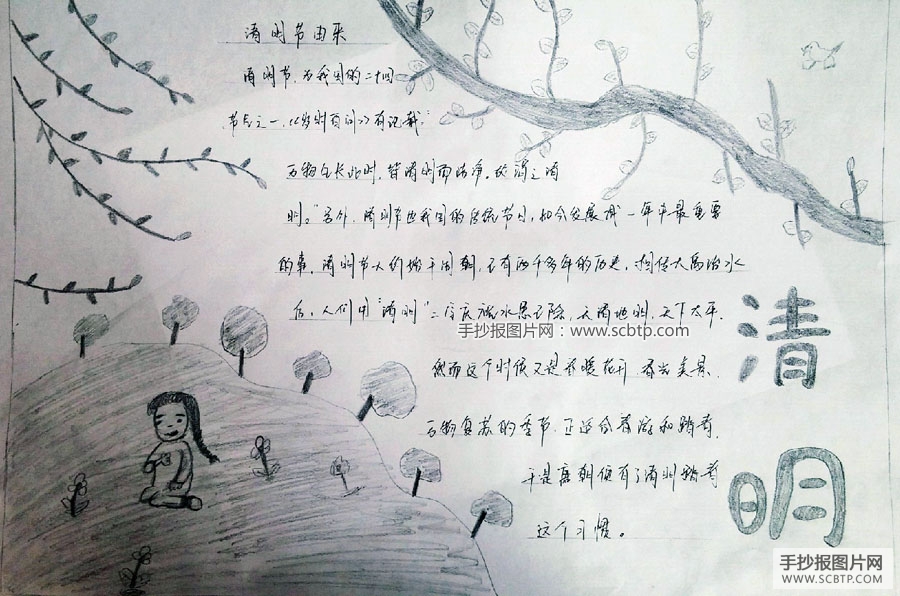 清明节由来
清明节,为我国的二十四
节气之一,《岁时百问》有记载:“
万物生长此时,皆清明而洁净,故谓之清
明。”另外,清明节也我国的传统节日,如今发展成一年中最重要
的事,清明节大约始于周朝,已有两千多年的历史,相传大禹治水
后,人们用“清明”二字庆祝水患已除,天清地明,天下太平.
手抄报图片网:www.scbtp.com
然而这个时候又是春暖花开 春光美景.
万物复苏的季节,正适合春游和踏青,
于是唐朝便有了清明踏青
这个习惯。
清
明
手抄报图片网
WWW.SCBTP.COM